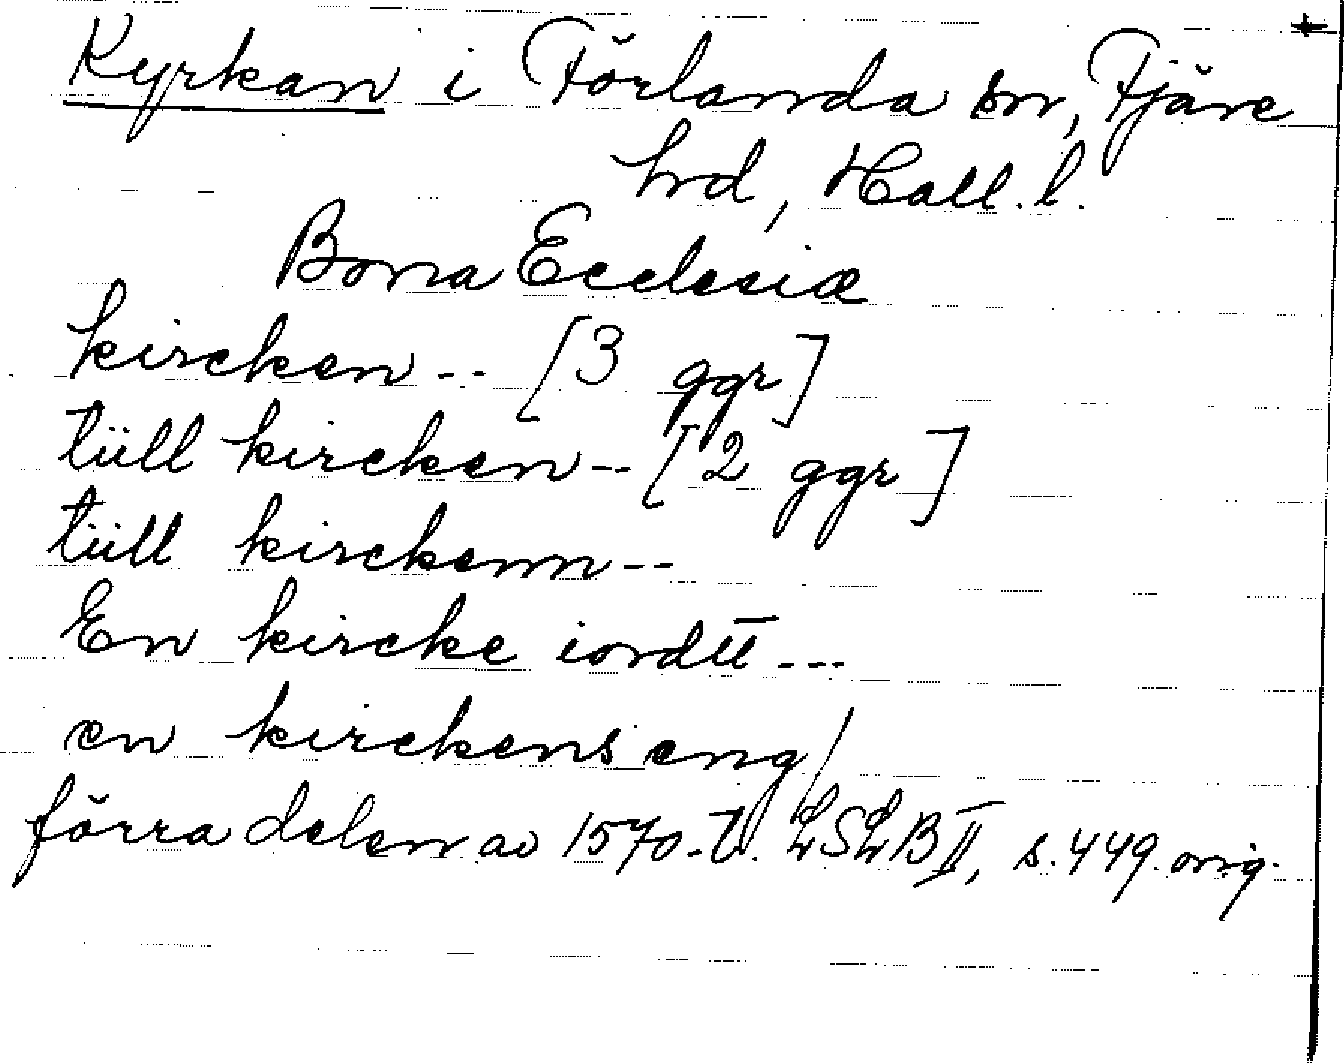 +
Kyrkan i Förlanda sn, Fjäre
hd, Hall. l.
Bona Ecclesiæ
kircken -- [3 ggr]
tüll kircken -- [2 ggr]
tüll kirckenn --
En kircke iordtt ---
en kirckens eng/
förra delen av 1570-t. LSLB II, s. 449. orig.